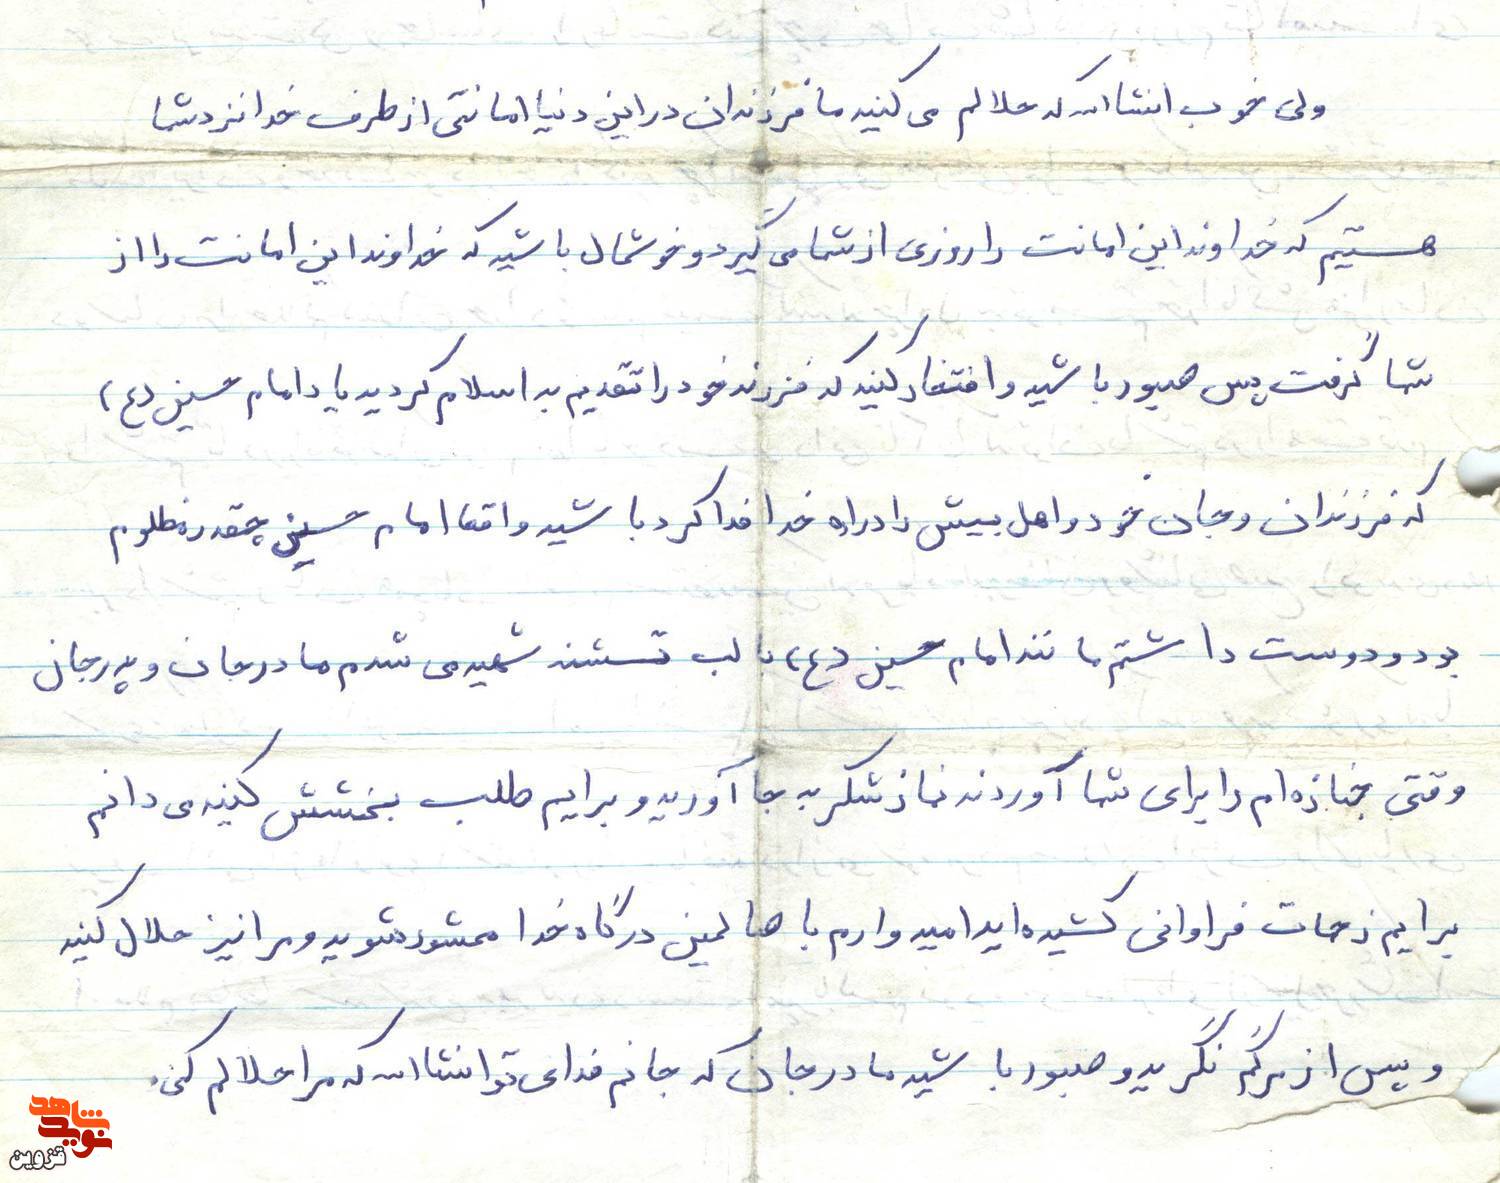 ولی خوب انشاالله که حلالم می کنید ما فرزندان در این دنیا امانتی از طرف خدا نزد شما
هستیم که خداوند این امانت را روزی از شما می گیرد و خوشحال باشید که خداوند این امانت را از
شما گرفت پس صبور باشید و افتخار کنید که فرزند خود را تقدیم به اسلام کردید یاد امام حسین (ع)
که فرزندان و جان خود و اهل بیتش را در راه خدا فدا کرد باشید واقعا امام حسین چقدر مظلوم
بود و دوست داشتم مانند امام حسین (ع) با لب تشنه شهید می شدم مادر جان و پدر جان
وقتی جنازه ام را برای شما آوردند نماز شکر به جا آورید و برایم طلب بخشش کنید می دانم
برایم زحمات فراوانی کشیده اید امیدوارم با صالحین درگاه خدا محشور شوید و مرا نیز حلال کنید
و پس از مرگم نگریید و صبور باشید مادر جان که جانم فدای تو انشاالله که مرا حلالم کنی.
نوید شاهد
قزوین